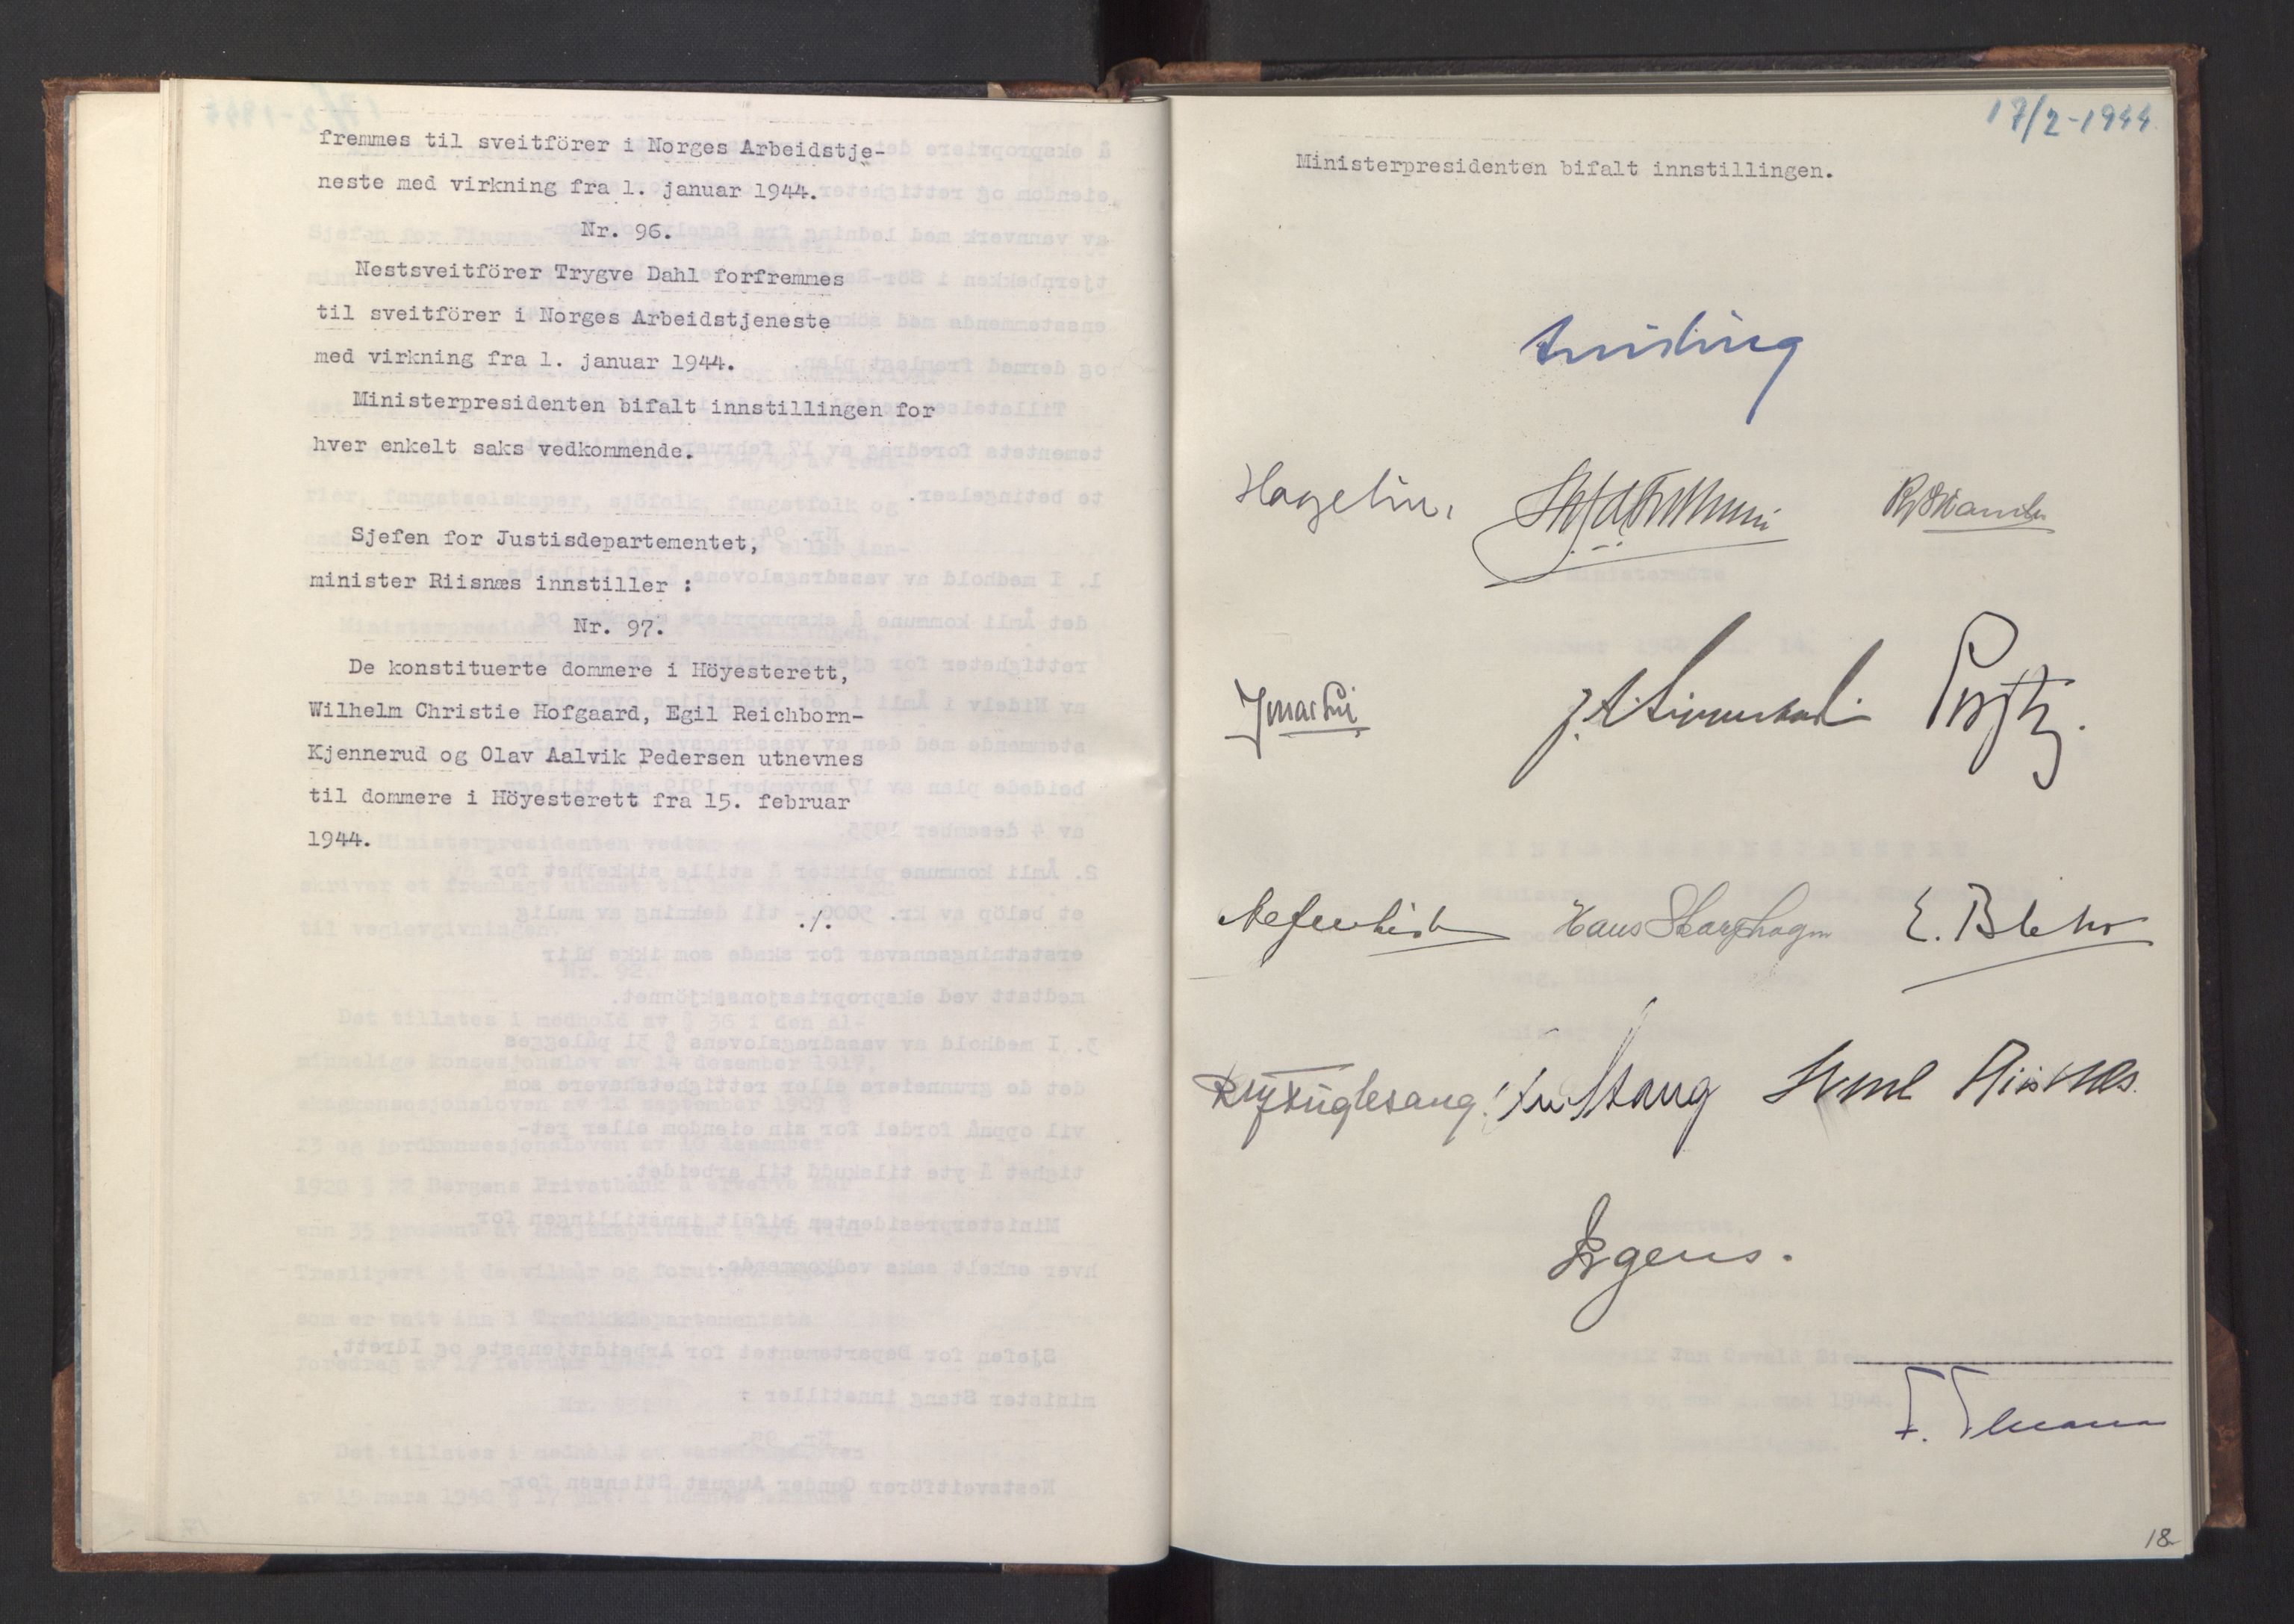 fremmes til sveitförer i Norges Arbeidstje-
neste med virkning fra 1. januar 1944.
Nr. 96.
Nestsveitförer Trygve Dahl forfremmes
til sveitförer i Norges Arbeidstjeneste
med virkning fra 1. januar 1944.
Ministerpresidenten bifalt innstillingen for
hver enkelt saks vedkommende.
Sjefen for Justisdepartementet,
minister Riisnæs innstiller :
Nr. 97.
De konstituerte dommere i Höyesterett,
Wilhelm Christie Hofgaard, Egil Reichborn-
Kjennerud og Olav Aalvik Pedersen utnevnes
til dommere i Höyesterett fra 15. februar
1944.
./.
17/2-1944
Ministerpresidenten bifalt innstillingen.
Quisling
Hagelin
R J Skancke
Hans Skarphagen E. Blehr
Rolf Fuglesang Stang Riisnæs.
Irgens.
18